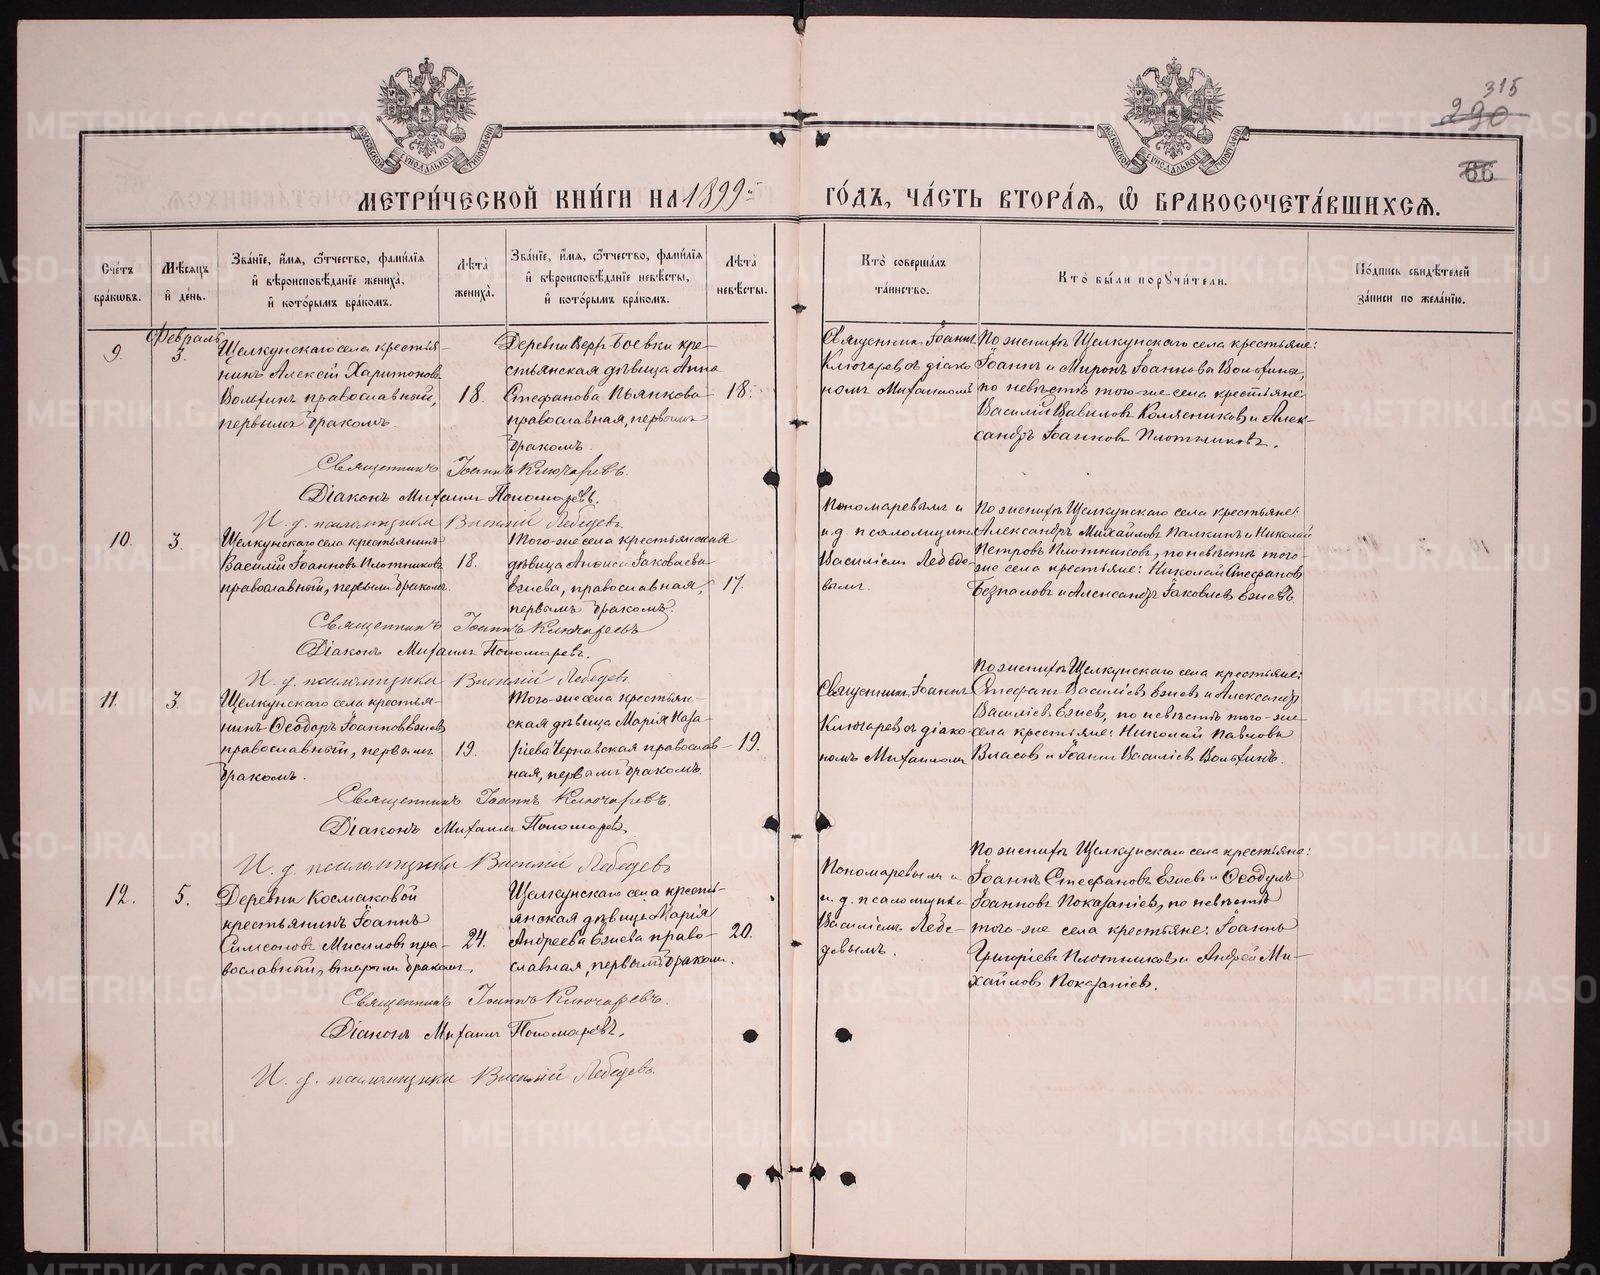 315
290
66
МЕТРИ́ЧЕСКОЙ КНИ́ГИ НА 1899й ГО́ДЪ, ЧА́СТЬ ВТОРА́Я, Ѽ БРАКОСОЧЕТА́ВШИХСЯ.
Сче́тъ бра́кѡвъ.
Мѣ́сяцъ и҆ де́нь.
Зва́нїе, и҆́мя, ѻ҆́тчество, фами́лїя и҆ вѣроисповѣ́данїе жениха̀, и҆ кото́рымъ бра́комъ.
Лѣта̀ жениха̀.
Зва́нїе, и҆́мя, ѻ҆́тчество, фами́лїя и҆ вѣроисповѣ́данїе невѣ́сты, и҆ кото́рымъ бра́комъ.
Лѣта̀ невѣ́сты.
Кто̀ соверша́лъ та́инство.
Кто̀ бы́ли порꙋчи́тели.
По́дпись свидѣ́телей за́писи по жела́нїю.
Февраль
9.
3.
Щелкунскаго села крестья-
нинъ Алексѣй Харитоновъ
православный,
первымъ бракомъ.
18.
Деревни Верх. Боевки кре-
стьянская дѣвица Анна
Стефанова Пьянкова
православная, первымъ
бракомъ.
18.
Священникъ Іоаннъ
Ключаревъ съ діако-
номъ Михаиломъ
По женихѣ Щелкунскаго села крестьяне:
Іоаннъ и Миронъ Іоанновы
по невѣстѣ того-же села крестьяне:
Василій Вавиловъ Колясниковъ и Алек-
сандръ Іоанновъ Плотниковъ.
Священникъ Іоаннъ Ключаревъ.
Діаконъ Михаилъ Пономаревъ.
И. д. псаломщика Василій Лебедевъ.
10.
3.
Щелкунскаго села крестьянинъ
Василій Іоанновъ Плотниковъ
православный, первымъ бракомъ.
18.
Того-же села крестьянская
дѣвица Іаковлева
Езиева, православная,
первымъ бракомъ.
17.
Пономаревымъ и
и. д. псаломщика
Василіемъ Лебеде-
вымъ.
По женихѣ Щелкунскаго села крестьяне:
Александръ Михайловъ Палкинъ и Николай
Петровъ Плотниковъ, по невѣстѣ того-
же села крестьяне: Николай Стефановъ
Безпаловъ и Александръ Іаковлевъ Езиевъ.
Священникъ Іоаннъ Ключаревъ
Діаконъ Михаилъ Пономаревъ.
И. д. псаломщика Василій Лебедевъ.
11.
3.
Щелкунскаго села крестья-
нинъ Ѳеодоръ Іоанновъ Езиевъ
православный, первымъ
бракомъ.
19.
Того-же села крестьян-
ская дѣвица Марія Каза-
Чернавская православ-
ная, первымъ бракомъ.
19.
Священникъ Іоаннъ
Ключаревъ съ діако-
номъ Михаиломъ
По женихѣ Щелкунскаго села крестьяне:
Стефанъ Василіевъ Езиевъ и Александръ
Василіевъ Езиевъ, по невѣстѣ того-же
села крестьяне: Николай Павловъ
Власовъ и Іоаннъ Василіевъ
Священникъ Іоаннъ Ключаревъ.
Діаконъ Михаилъ Пономаревъ.
И. д. псаломщика Василій Лебедевъ
12.
5.
Деревни Космаковой
крестьянинъ Іоаннъ
Симеоновъ Мисиловъ пра-
вославный, вторымъ бракомъ.
24.
Щелкунскаго села кресть-
янская дѣвица Марія
Андреева Езиева право-
славная, первымъ бракомъ.
20.
Пономаревымъ и
и. д. псаломщика
Василіемъ Лебе-
девымъ.
По женихѣ Щелкунскаго села крестьяне:
Іоаннъ Стефановъ Езиевъ и Ѳеодулъ
Іоанновъ Показаніевъ, по невѣстѣ
того-же села крестьяне: Іоаннъ
Григоріевъ Плотниковъ и Андрей Ми-
хайловъ Показаніевъ.
Священникъ Іоаннъ Ключаревъ.
Діаконъ Михаилъ Пономаревъ.
И. д. псаломщика Василій Лебедевъ.